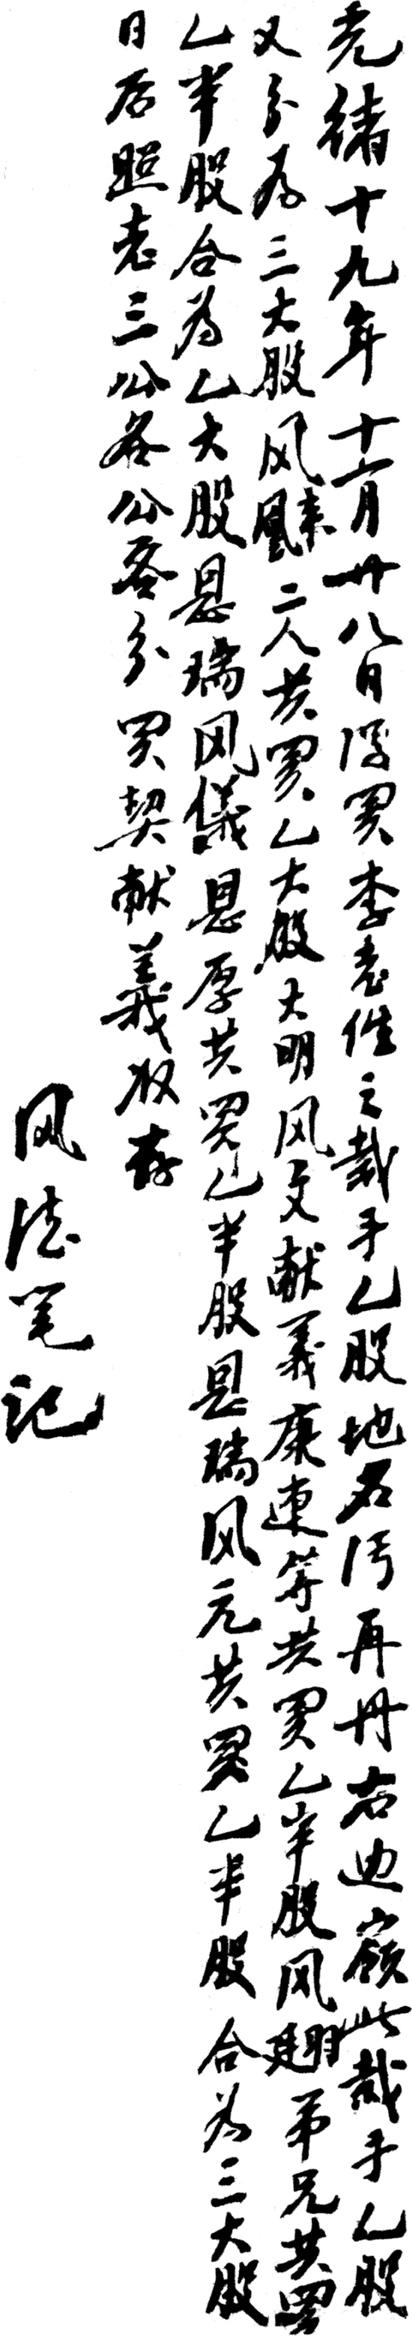 光绪十九年十二月廿八日得买李老性之栽手乙股地名污再丹右边岭此栽手乙股
又分为三大股风凰来二人共买乙大股大明风文献义康连等共买乙半股风翅弟兄共买
乙半股合为乙大股恩瑞风仪恩厚共买乙半股恩瑞风元共买乙半股合为三大股
日后照老三公各公各分买契献义收存
风德笔记